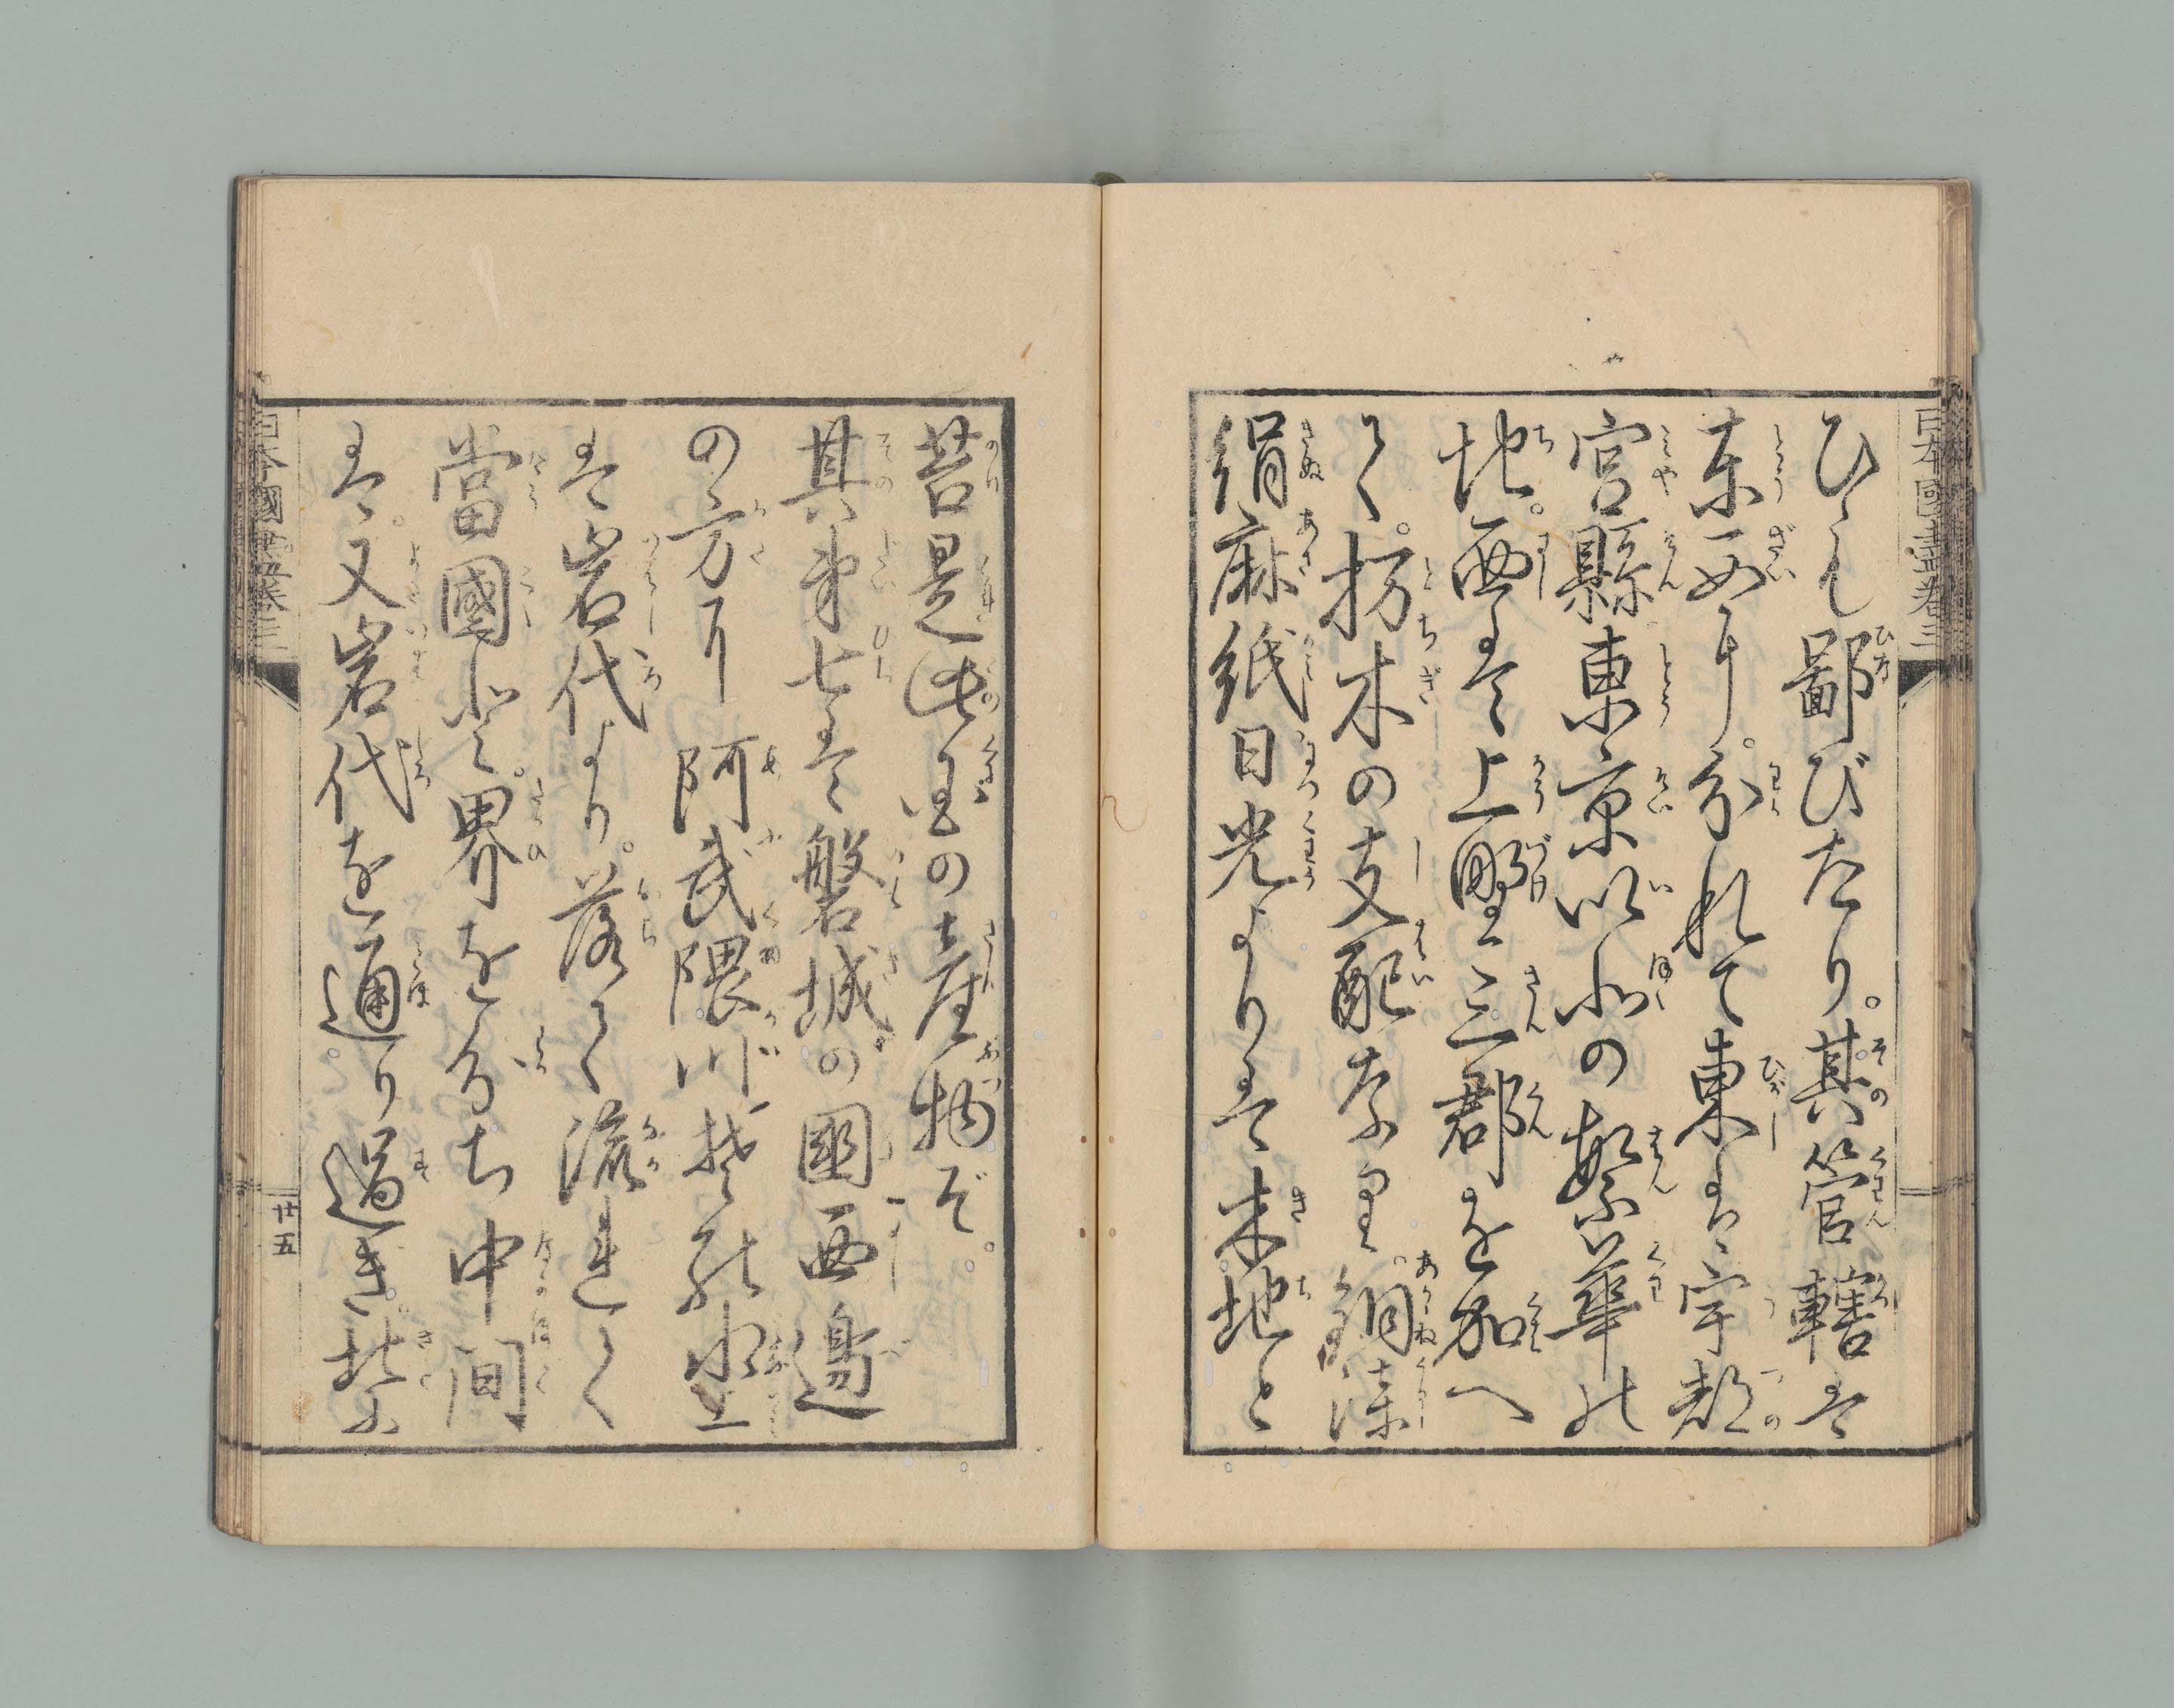 日本國盡卷三
ひくも鄙びたり。其管轄は
東西に。分れて東は宇都
宮縣東京以北の繁華の
地。西は上野三郡を加へ
て。栃木の支配なり。絹漆
絹麻紙日光よりは木地と
苔是此国の産物ぞ。
其第七は磐城の國西邊
の方に阿武隈川其水上
は岩代より。落て流れて
當國北と。界をわかち中間
は。又岩代を通り過ぎ。北に
日本國盡卷三
廿五